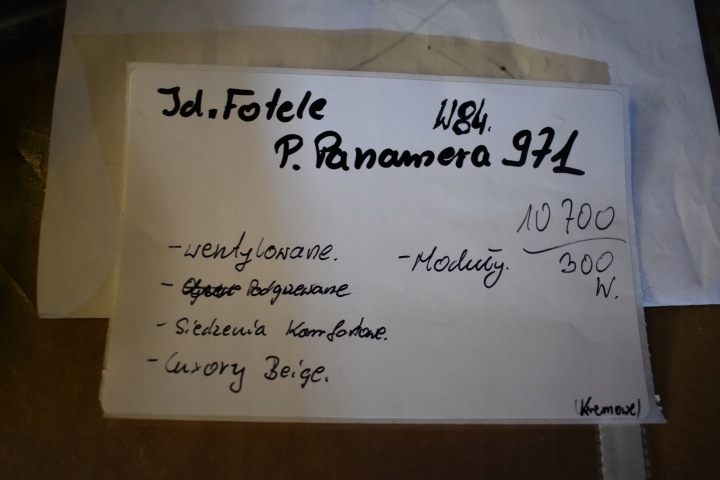 Jd. Fotele W84.
P. Panamera 971
10 700
- wentylowane. - Moduły. 300
W.
- Podgrzewane
- Siedzenia Komfortowe.
- Luxory Beige.
(Kremowe)